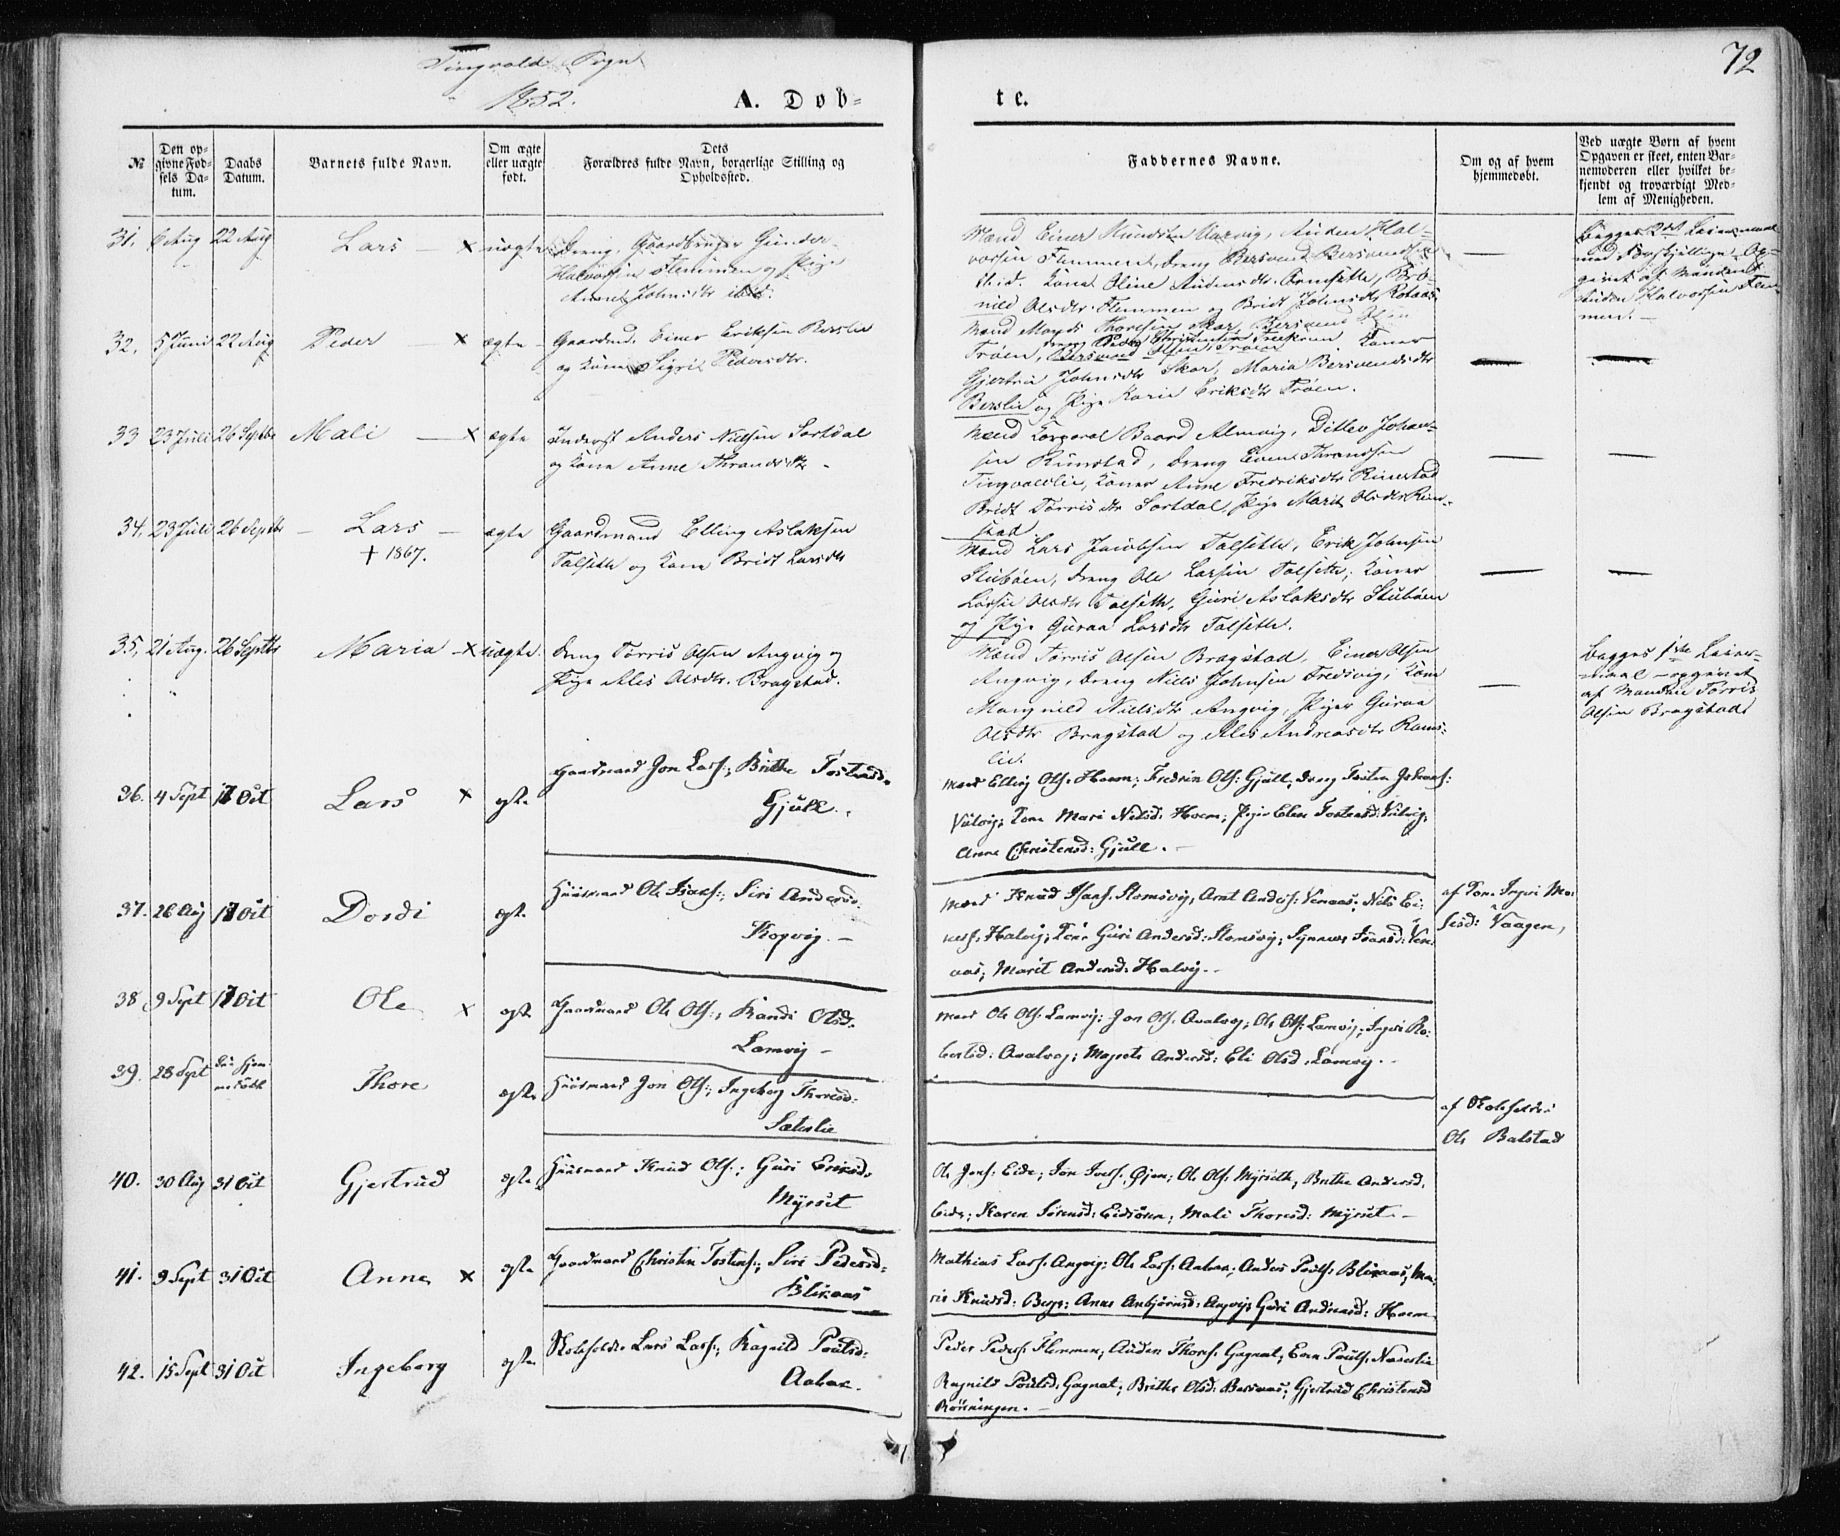 72
Tingvold Sogn
1852.
A. Døb-
te.
№
Den op-
givne Fød-
sels Da-
tum.
Daabs
Datum.
Barnets fulde Navn.
Om ægte
eller uægte
født.
Dets
Forældres fulde Navn, borgerlige Stilling og
Opholdssted.
Faddernes Navne.
Om og af hvem
hjemmedøbt.
Ved uægte Børn af hvem
Opgaven er skeet, enten Bar-
nemoderen eller hvilket be-
kjendt og troværdigt Med-
lem af Menigheden.
31. 6 Aug 22 Aug Lars — × uægte
Dreng, Gaardbruger Gunder
Halvorsen Flemmen og Pige
Anne Johnsdtr ibid.
Mænd Einer Knudsen, Auden Hal-
vorsen Flemmen, dreng Bersvend Bersvendsen
ibid. Kone Oline Audensdtr
nild Olsdtr Flemmen og Brit Johnsdtr
—
Begges Leiermaal
Auden Halvorsen Flem-
men.
32. 5 Juni 22 Aug Peder — × ægte
Gaardmd. Einer Eriksen Berslie
og Kone Sigri Pedersdtr.
Mænd Mons Thoresen Skar, Bersvend Olsen
Trøen, Koner
Gjertru Johnsdtr Skar, Maria Bersvendsdtr
Berslie og Pige Karie Eriksdtr Trøen.
— —
33 23 Juli 26 Septbr Mali — × ægte
Inderst Anders Nielsen Sortdal
og Kone Anne Throndsdtr -
Mænd Korporal Baard Almvig, Ditlev Johan-
sen Rimstad, dreng Even Throndsen
Tingvoldlie, Koner Anne Fredriksdtr Rimstad
Bridt Torrisdtr Sortdal, Pige Marit Olsdtr Rim-
stad.
— —
34. 23 Juli 26 Septbr — Lars — ægte
† 1867.
Gaardmand Elling Aslaksen
Talseth og Kone Bridt Larsdtr
Mænd Lars Jacobsen Talseth, Erik Johnsen
Stubøen, dreng Ole Larsen Talseth, Koner
Olsdtr Talseth, Guri Aslaksdtr Stubøen
og Pige Guraa Larsdtr Talseth.
— —
35. 21 Aug. 26 Septbr Maria — × uægte.
Dreng Torris Olsen Angvig og
Pige Ales Olsdtr. Bragstad.
Mænd Torris Olsen Bragstad, Einer Olsen
Angvig, dreng Niels Johnsen Fredsvig, Kone
Magnild Nielsdtr Angvig, Piger Guraa
Olsdtr Bragstad og Ales Andreasdtr Rams-
lie.
—
Begges 1ste Leier-
maal — opgivet
af Manden Torris
Olsen Bragstad
36. 4 Sept 17 Oct Lars × egte
Gaardmand Jon Lars:, Brithe Tostensd.
Gjull.
Mænd Elling Ols. Hoem; Fredrik Ols: Gjull; dreng Tosten Johans:
Vulvig; Kone Mari Nilsd: Hoem; Piger Elen Tostensd: Vulvig;
Anne Christensd: Gjull. —
37. 26 Aug 17 Oct Dordi egte
Huusmand Ole Isaks:; Siri Andersd.
Kogvig. —
Mænd Knud Isaks: Stomsvig, Arnt Anders: Venaas; Nils Ei-
ners: Halvig; Kone Guri Andersd: Stomsvig; Synnev Isaksd: Ven-
aas; Marit Andersd: Halvig. -
af Kone Ingri Mo-
sesd: Vaagen,
38 9 Sept 17 Oct Ole × egte
Gaardmand Ole Ols:; Randi Olsd.
Lomvig —
Mænd Ole Ols: Lomvig; Jon Ols. Qvalvog; Ole Ols: Lomvig; Ingri Ro-
bertsd: Qvalvog; Magrete Andersd: Eli Olsd. Lomvig. -
39. 28 Sept
Thore egte
Huusmand Jon Ols:; Ingeborg Thoresd.
Sæterlie
af Skoleholder
Ole Balstad
40. 30 Aug 31 Oct Gjertrud egte
Huusmand Knud Ols:; Guri Eriksd.
Myrset
Ole Jons: Eide; Jon Ivers. Øyen; Ole Ols. Myrseth; Brithe Andersd.
Eide; Karen Sørensd: Eidsøren; Mali Thoresd: Myrset. —
41. 9 Sept 31 Oct Anne × egte
Gaardmand Christen Tostens:; Siri Pedersd.
Blikaas
Mathias Lars: Angvig; Ole Lars: Aakan; Anders Pouls: Blikaas; Ma-
rit Knudsd: Anne Anbjørnsd: Angvig; Guri Andreasd: Hoem.
42. 15 Sept 31 Oct Ingeborg egte
Skoleholder Lars Lars:; Ragnild Poulsd:
Aakan.
Peder Peders: Flemmen; Auden Thores: Gagnat; Even Pouls. Naaeslie
Ragnild Poulsd: Gagnat; Brithe Olsd: Gjertrud Christensd
Rønningen. —